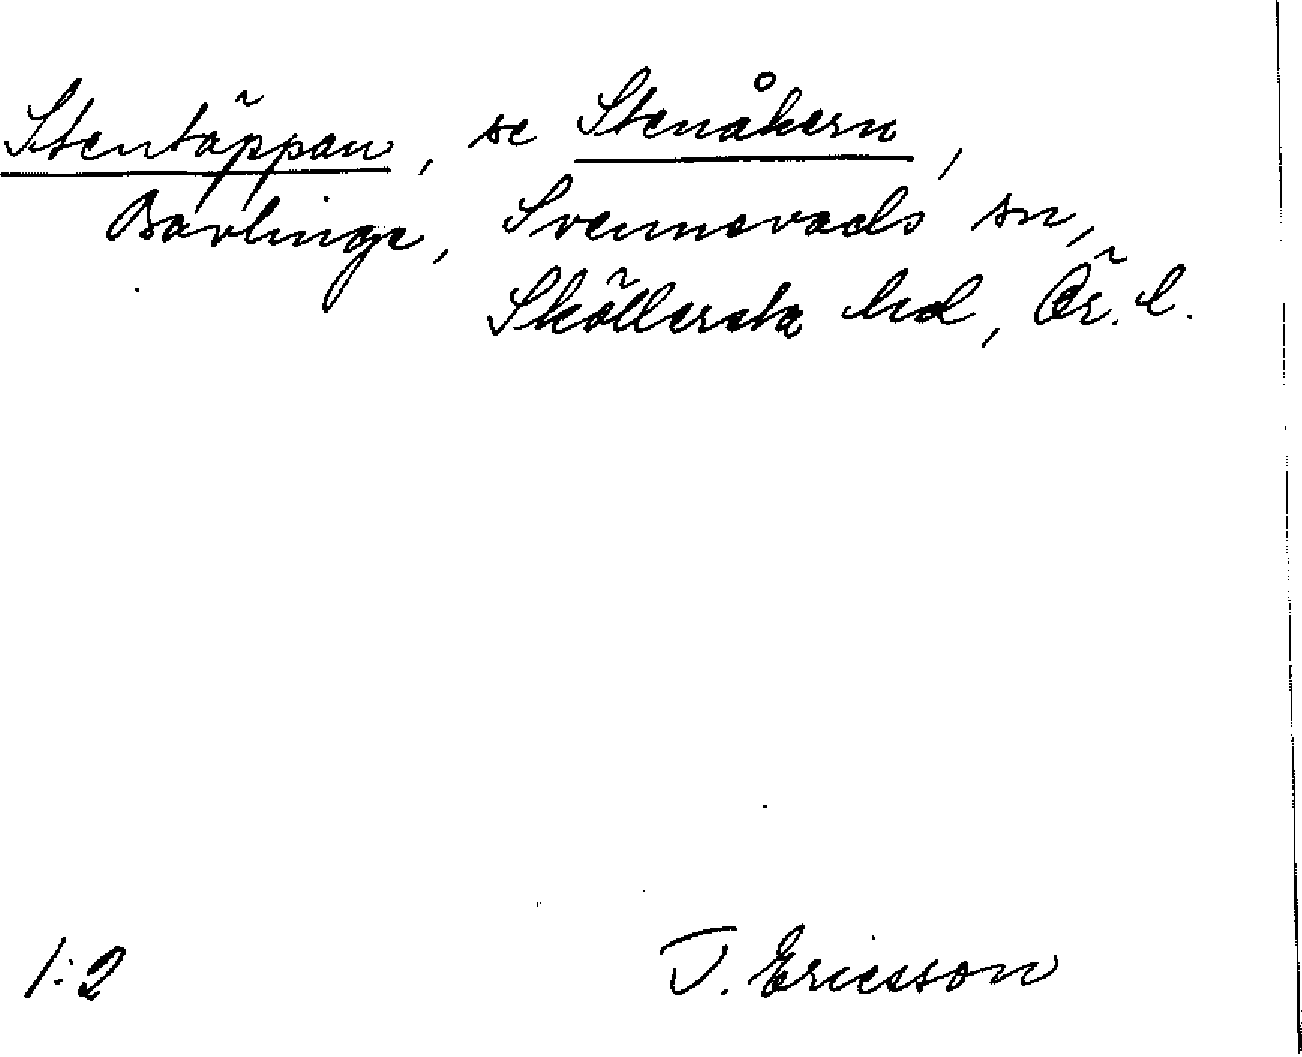 Stentäppan, se Stenåkern,
Bavlinge, Svennevads sn,
Sköllersta hd, Ör. l.
1:2
T. Ericsson